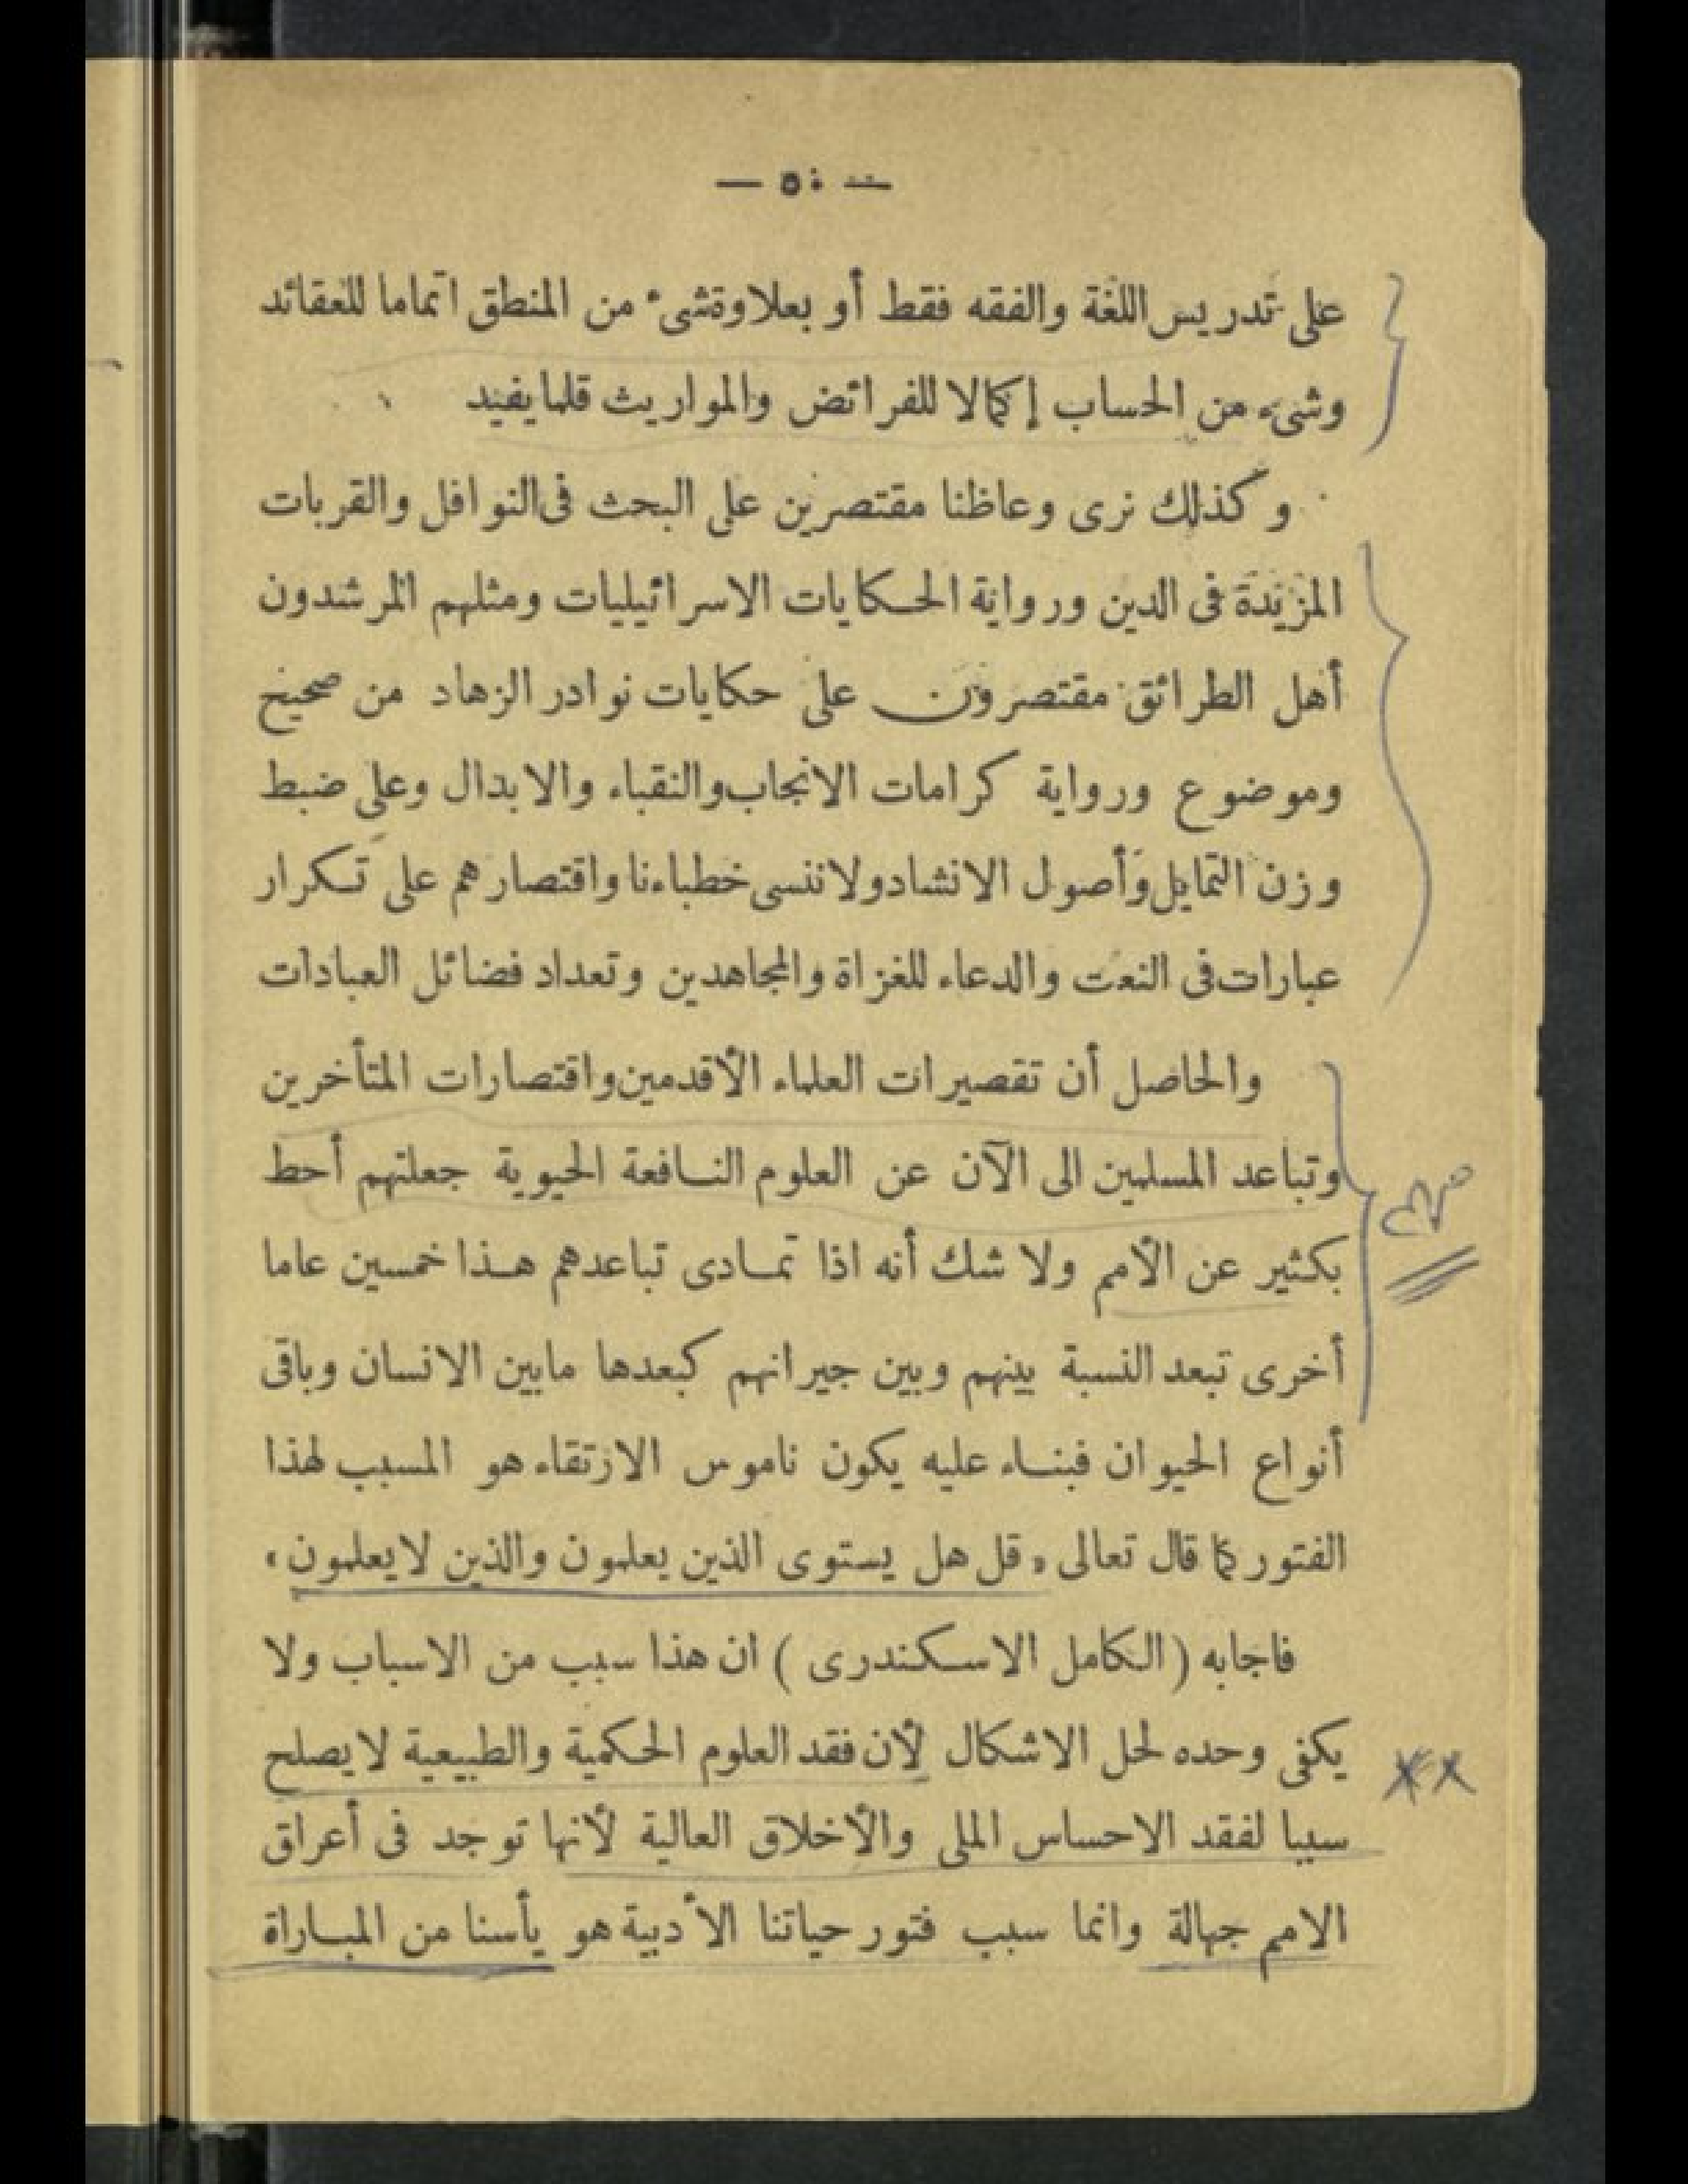 — ٥٠ —
على تدريس اللغة والفقه فقط أو بعلاوة شىء من المنطق اتماما للعقائد
وشىء من الحساب إكمالا للفرائض والمواريث قلما يفيد
وكذلك نرى وعاظنا مقتصرين على البحث فى النوافل والقربات
المزيدة فى الدين ورواية الحكايات الاسرائيليات ومثلهم المرشدون
أهل الطرائق مقتصرون على حكايات نوادر الزهاد من صحيح
وموضوع ورواية كرامات الانجاب والنقباء والابدال وعلى ضبط
وزن التمايل وأصول الانشاد ولا ننسى خطباءنا واقتصارهم على تكرار
عبارات فى النعت والدعاء للغزاة والمجاهدين وتعداد فضائل العبادات
والحاصل أن تقصيرات العلماء الأقدمين واقتصارات المتأخرين
وتباعد المسلمين الى الآن عن العلوم النافعة الحيوية جعلتهم أحط
بكثير عن الأمم ولا شك أنه اذا تمادى تباعدهم هذا خمسين عاما
أخرى تبعد النسبة بينهم وبين جيرانهم كبعدها مابين الانسان وباقى
أنواع الحيوان فبناء عليه يكون ناموس الارتقاء هو المسبب لهذا
الفتور كما قال تعالى «قل هل يستوى الذين يعلمون والذين لا يعلمون»
فاجابه (الكامل الاسكندرى) ان هذا سبب من الاسباب ولا
يكفى وحده لحل الاشكال لأن فقد العلوم الحكمية والطبيعية لا يصلح
سببا لفقد الاحساس الملى والأخلاق العالية لأنها توجد فى أعراق
الامم جهالة وانما سبب فتور حياتنا الأدبية هو يأسنا من المباراة